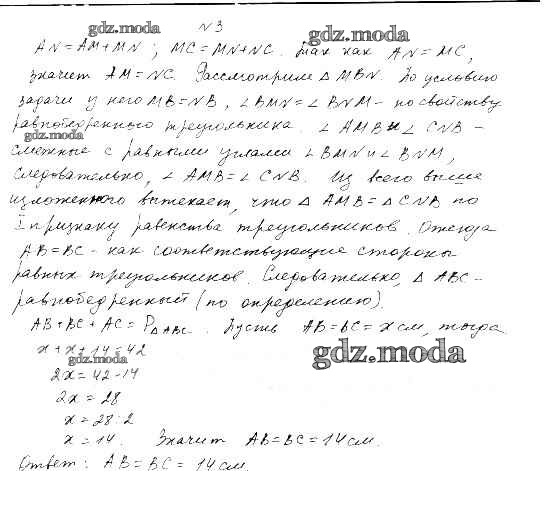 gdz.moda
№3
gdz.moda
AN = AM + MN ; MC = MN + NC. Так как AN = MC,
значит AM = NC. Рассмотрим △ MBN. По условию
задачи у него MB = NB, ∠BMN = ∠BNM - по свойству
равнобедренного треугольника. ∠ AMB и ∠ CNB -
gdz.moda
смежные с равными углами ∠ BMN и ∠ BNM,
следовательно, ∠ AMB = ∠ CNB. Из всего выше
изложенного вытекает, что △ AMB = △ CNB по
I признаку равенства треугольников. Отсюда
AB = BC - как соответствующие стороны
равных треугольников. Следовательно, △ ABC -
равнобедренный (по определению).
AB + BC + AC = P△ABC. Пусть AB = BC = x см, тогда
x + x + 14 = 42
gdz.moda
gdz.moda
2x = 42 - 14
2x = 28
x = 28 : 2
x = 14. Значит AB = BC = 14 см.
Ответ: AB = BC = 14 см.